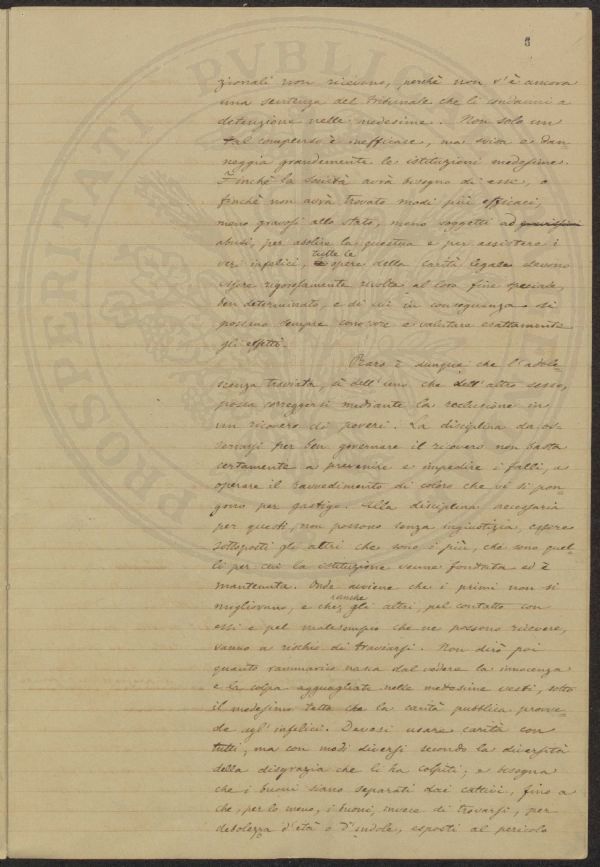 zionali non ricevono, perchè non v'è ancora
una sentenza del tribunale che li condanni a
detenzione nelle medesime. Non solo un
tal compenso è inefficace, ma svisa e dan-
neggia grandemente le istituzioni medesime.
Finchè la società avrà bisogno di esse, o
finchè non avrà trovato modi più efficaci,
meno gravosi allo stato, meno soggetti ad
abusi, per abolire la questua e per assistere i
veri infelici, tutte le opere della carità legale devono
essere rigorosamente rivolte al loro fine speciale,
ben determinato, e di cui in conseguenza si
possano sempre conoscere e valutare esattamente
gli effetti.
Raro è dunque che l'adole-
scenza traviata, sì dell'uno che dell'altro sesso,
possa correggersi mediante la reclusione in
un ricovero di poveri. La disciplina da os-
servarsi per ben governare il ricovero non basta
certamente a prevenire e impedire i falli, a
operare il ravvedimento di coloro che vi si pon-
gono per gastigo. Alla disciplina necessaria
per questi, non possono senza ingiustizia, essere
sottoposti gli altri che sono i più, che sono quel-
li per cui la istituzione venne fondata ed è
mantenuta. Onde avviene che i primi non si
migliorano, e che ranche gli altri, pel contatto con
essi e pel mal esempio che ne possono ricevere,
vanno a rischio di traviarsi. Non dirò poi
quanto rammarico nasca dal vedere la innocenza
e la colpa agguagliate nelle medesime vesti, sotto
il medesimo tetto che la carità pubblica provve-
de agl'infelici. Devesi usare carità con
tutti, ma con modi diversi secondo la diversità
della disgrazia che li ha colpiti; e bisogna
che i buoni siano separati dai cattivi, fino a
che, per lo meno, i buoni, invece di trovarsi, per
debolezza d'età o d'indole, esposti al pericolo